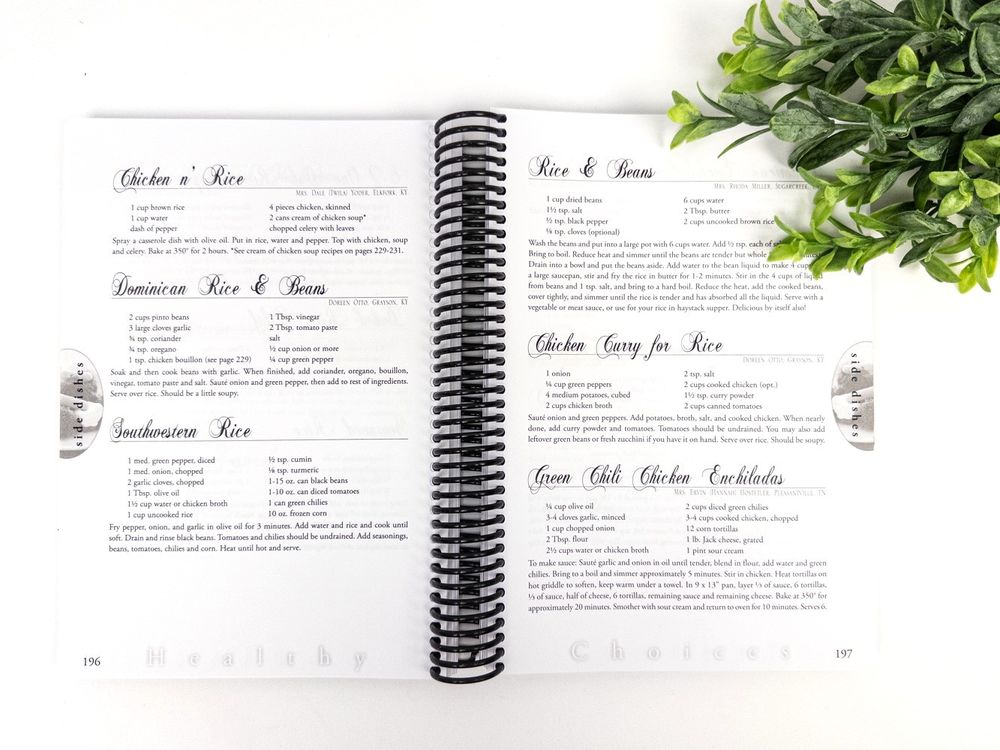 Chicken n' Rice
Mrs. Dale (Twila) Yoder, Elkfork, KY
1 cup brown rice
1 cup water
dash of pepper
4 pieces chicken, skinned
2 cans cream of chicken soup*
chopped celery with leaves
Spray a casserole dish with olive oil. Put in rice, water and pepper. Top with chicken, soup
and celery. Bake at 350° for 2 hours. *See cream of chicken soup recipes on pages 229-231.
Dominican Rice & Beans
Doreen Otto, Grayson, KY
2 cups pinto beans
3 large cloves garlic
¾ tsp. coriander
¾ tsp. oregano
1 tsp. chicken bouillon (see page 229)
1 Tbsp. vinegar
2 Tbsp. tomato paste
salt
½ cup onion or more
¼ cup green pepper
Soak and then cook beans with garlic. When finished, add coriander, oregano, bouillon,
vinegar, tomato paste and salt. Sauté onion and green pepper, then add to rest of ingredients.
Serve over rice. Should be a little soupy.
side dishes
Southwestern Rice
1 med. green pepper, diced
1 med. onion, chopped
2 garlic cloves, chopped
1 Tbsp. olive oil
1½ cup water or chicken broth
1 cup uncooked rice
½ tsp. cumin
⅛ tsp. turmeric
1-15 oz. can black beans
1-10 oz. can diced tomatoes
1 can green chilies
10 oz. frozen corn
Fry pepper, onion, and garlic in olive oil for 3 minutes. Add water and rice and cook until
soft. Drain and rinse black beans. Tomatoes and chilies should be undrained. Add seasonings,
beans, tomatoes, chilies and corn. Heat until hot and serve.
196
Healthy
Rice & Beans
Mrs. Rhoda Miller, Sugarcreek,
1 cup dried beans
1½ tsp. salt
½ tsp. black pepper
⅛ tsp. cloves (optional)
6 cups water
2 Tbsp. butter
2 cups uncooked brown rice
Wash the beans and put into a large pot with 6 cups water. Add ½ tsp. each of
Bring to boil. Reduce heat and simmer until the beans are tender but whole
Drain into a bowl and put the beans aside. Add water to the bean liquid to make 4
a large saucepan, stir and fry the rice in butter for 1-2 minutes. Stir in the 4 cups of liquid
from beans and 1 tsp. salt, and bring to a hard boil. Reduce the heat, add the cooked beans,
cover tightly, and simmer until the rice is tender and has absorbed all the liquid. Serve with a
vegetable or meat sauce, or use for your rice in haystack supper. Delicious by itself also!
Chicken Curry for Rice
Doreen Otto, Grayson, KY
1 onion
¼ cup green peppers
4 medium potatoes, cubed
2 cups chicken broth
2 tsp. salt
2 cups cooked chicken (opt.)
1½ tsp. curry powder
2 cups canned tomatoes
Sauté onion and green peppers. Add potatoes, broth, salt, and cooked chicken. When nearly
done, add curry powder and tomatoes. Tomatoes should be undrained. You may also add
leftover green beans or fresh zucchini if you have it on hand. Serve over rice. Should be soupy.
side dishes
Green Chili Chicken Enchiladas
Mrs. Ervin (Hannah) Hostetler, Pleasantville, TN
¼ cup olive oil
3-4 cloves garlic, minced
1 cup chopped onion
2 Tbsp. flour
2½ cups water or chicken broth
2 cups diced green chilies
3-4 cups cooked chicken, chopped
12 corn tortillas
1 lb. Jack cheese, grated
1 pint sour cream
To make sauce: Sauté garlic and onion in oil until tender, blend in flour, add water and green
chilies. Bring to a boil and simmer approximately 5 minutes. Stir in chicken. Heat tortillas on
hot griddle to soften, keep warm under a towel. In 9 x 13" pan, layer ⅓ of sauce, 6 tortillas,
⅓ of sauce, half of cheese, 6 tortillas, remaining sauce and remaining cheese. Bake at 350° for
approximately 20 minutes. Smother with sour cream and return to oven for 10 minutes. Serves 6.
Choices
197